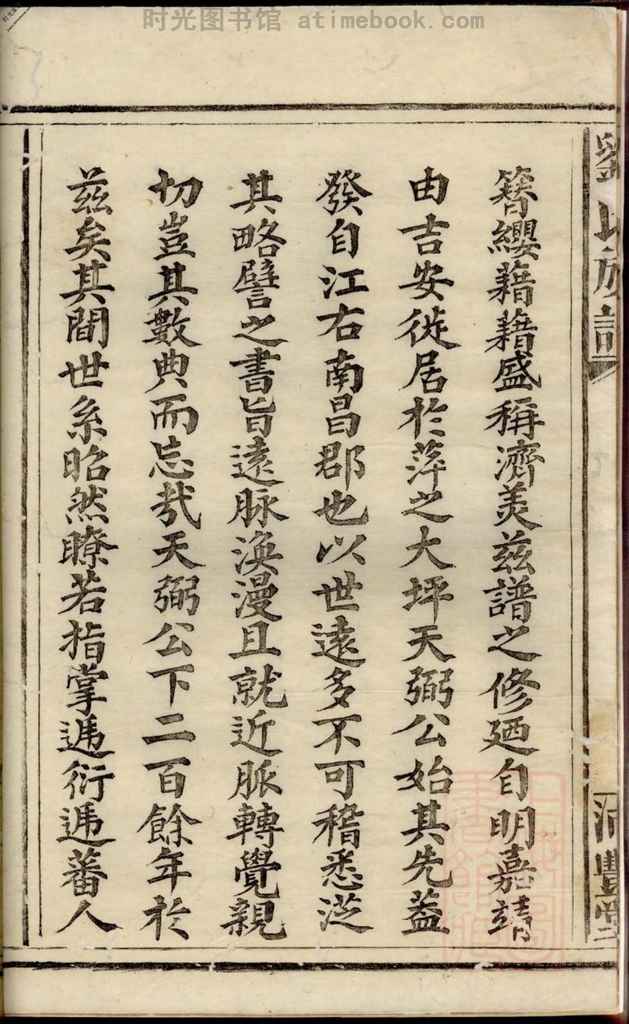 时光图书馆 atimebook.com
劉氏族譜
沛豐堂
簪纓藉藉盛稱濟美兹譜之修廼自明嘉靖
由吉安徙居於萍之大坪天弼公始其先蓋
發自江右南昌郡也以世遠多不可稽悉從
其略譬之書旨遠脉渙漫且就近脈轉覺親
切豈其數典而忘哉天弼公下二百餘年於
兹矣其間世系昭然瞭若指掌遞衍遞蕃人